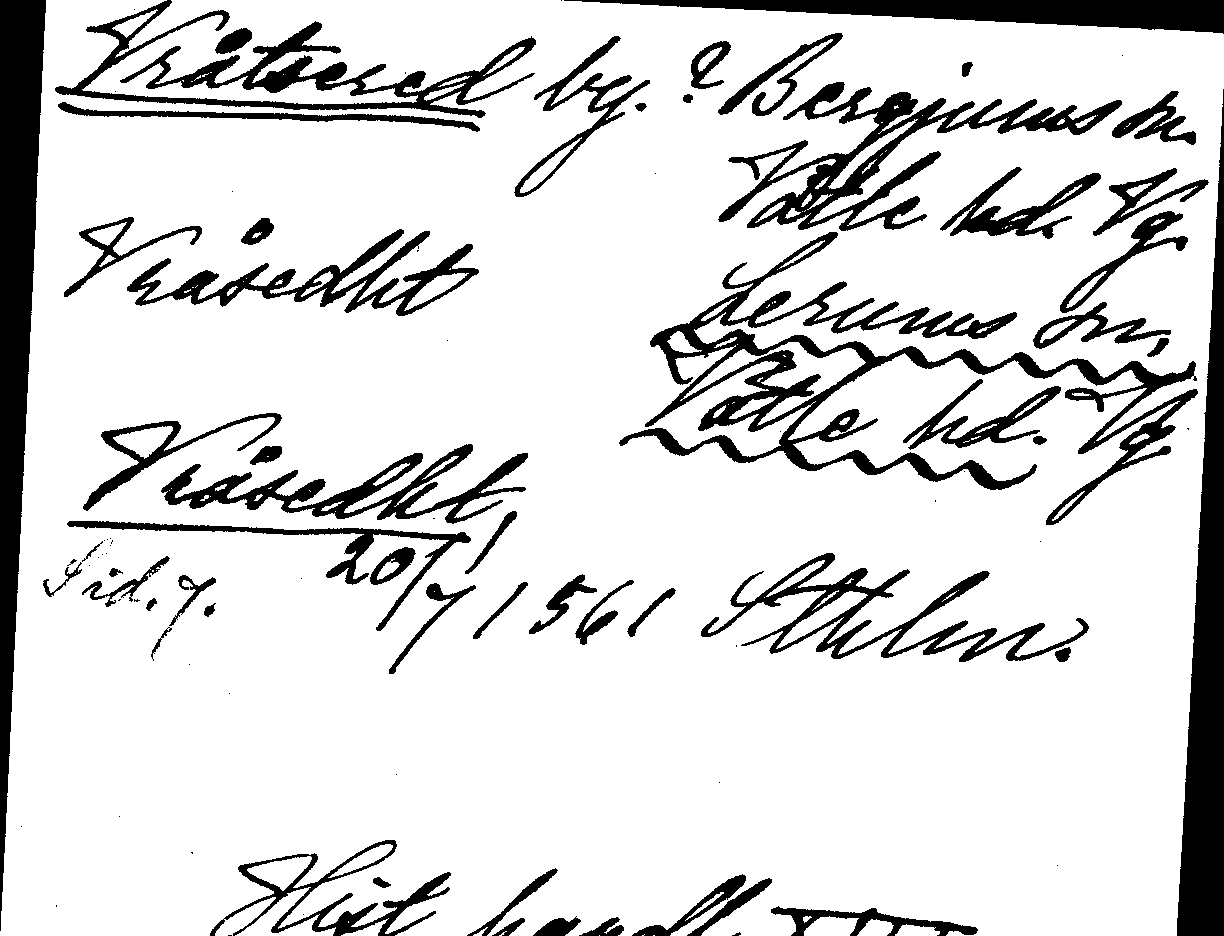 Vråtsered by. ? Bergjums sn.
Vättle hd. Vg.
Vråsedht
Lerums sn,
Vättle hd. Vg.
Vråsedht,
Sid. 7. 20/7 1561 Sthlm.
Hist handl. III